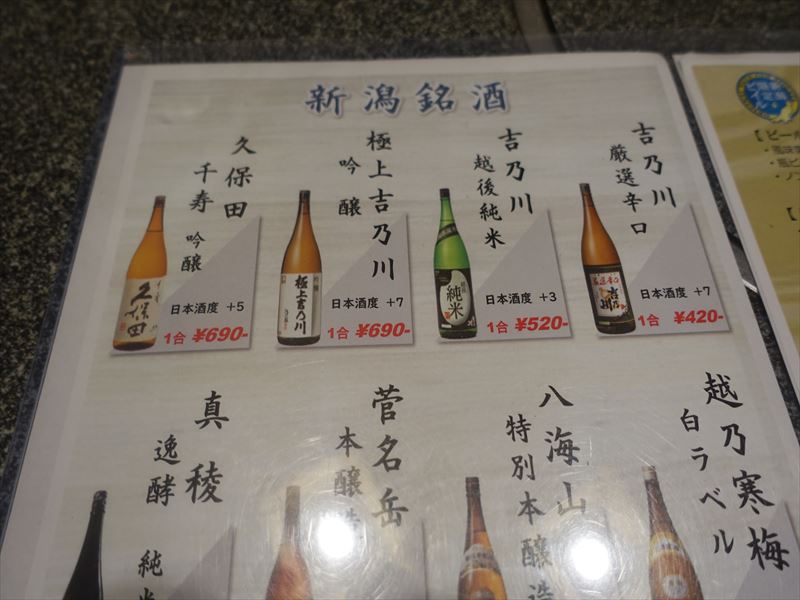 新潟銘酒
吉乃川
厳選辛口
日本酒度 +7
1合 ¥420-
吉乃川
越後純米
日本酒度 +3
1合 ¥520-
極上吉乃川
吟醸
日本酒度 +7
1合 ¥690-
久保田
千寿 吟醸
日本酒度 +5
1合 ¥690-
越乃寒梅
白ラベル
八海山
特別本醸造
菅名岳
本醸造
真稜
逸酵 純米
久保田
極上吉乃川
純米